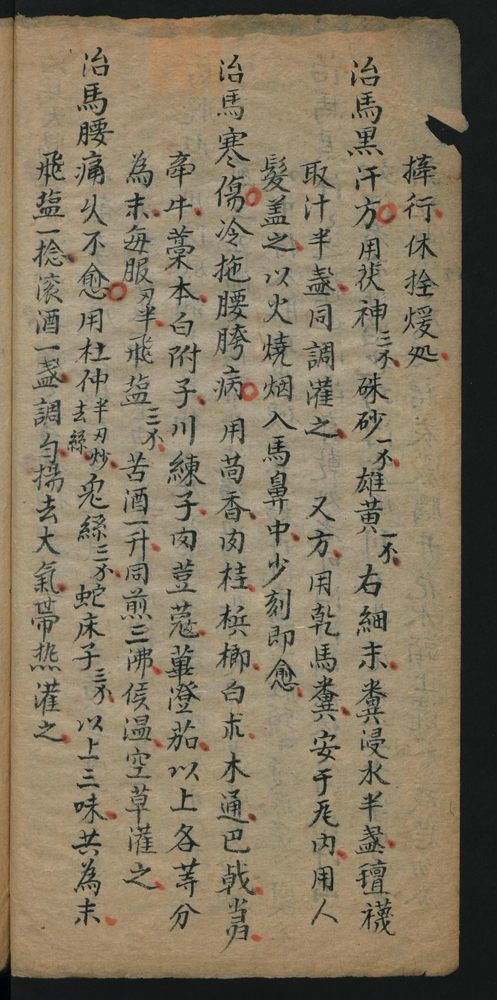 捧行休拴煖処
治馬黑汗方用茯神三不硃砂一不雄黃一不右細末糞浸水半盞㽵襪
取汁半盞同調灌之又方用乾馬糞安于死內用人
髮盖之以火燒烟入馬鼻中少刻即愈
治馬寒傷冷拖腰胯病用茴香肉桂梹榔白朮木通巴戟當歸
牽牛藁本白附子川練子肉荳蔻蓽澄茄以上各等分
為末每服刃半飛盐三不苦酒一升同煎三沸侯温空草灌之
治馬腰痛久不愈用杜仲半刃炒去絲兎絲三不蛇床子三不以上三味共為末
飛盐一捻滚酒一盞調匀揚去大氣帶熱灌之